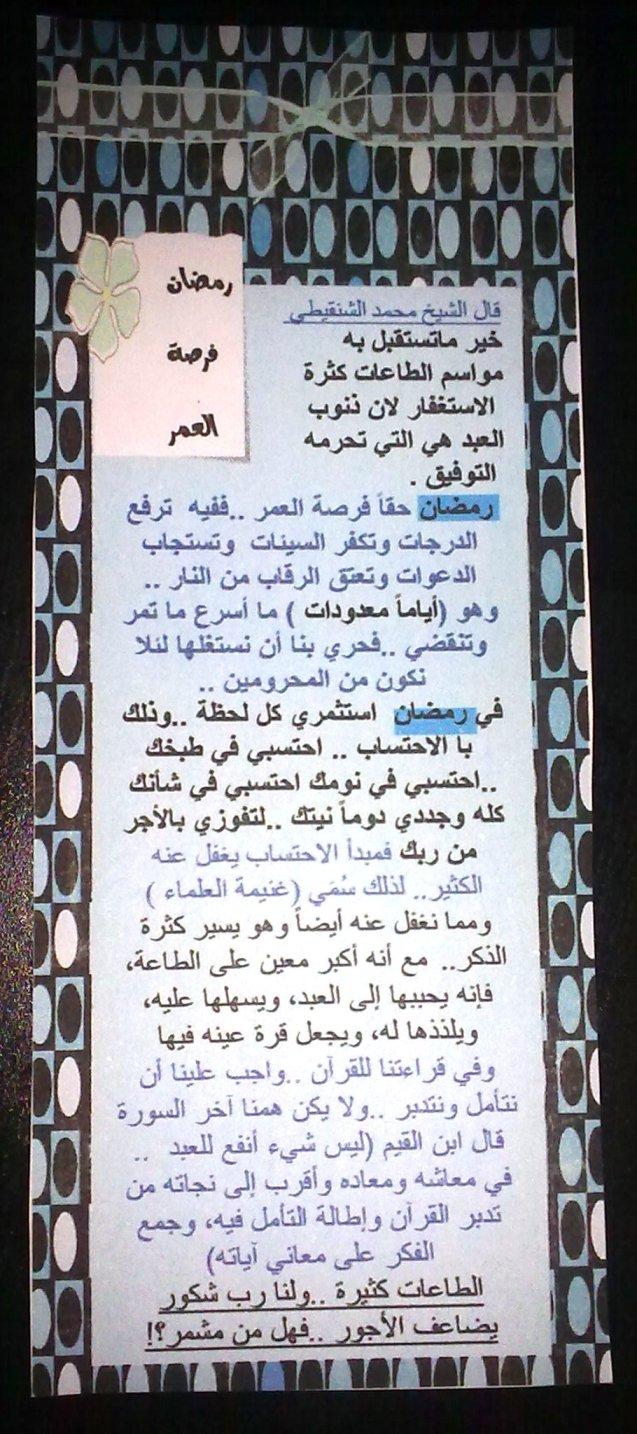 رمضان
فرصة
العمر
قال الشيخ محمد الشنقيطي
خير ماتستقبل به
مواسم الطاعات كثرة
الاستغفار لان ذنوب
العبد هي التي تحرمه
التوفيق .
رمضان حقاً فرصة العمر ..ففيه ترفع
الدرجات وتكفر السيئات وتستجاب
الدعوات وتعتق الرقاب من النار ..
وهو (أياماً معدودات ) ما أسرع ما تمر
وتنقضي ..فحري بنا أن نستغلها لئلا
نكون من المحرومين ..
في رمضان استثمري كل لحظة ..وذلك
با الاحتساب .. احتسبي في طبخك
..احتسبي في نومك احتسبي في شأنك
كله وجددي دوماً نيتك ..لتفوزي بالأجر
من ربك فمبدأ الاحتساب يغفل عنه
الكثير.. لذلك سُمَي (غنيمة العلماء )
ومما نغفل عنه أيضاً وهو يسير كثرة
الذكر.. مع أنه أكبر معين على الطاعة،
فإنه يحببها إلى العبد، ويسهلها عليه،
ويلذذها له، ويجعل قرة عينه فيها
وفي قراءتنا للقرآن ..واجب علينا أن
نتأمل ونتدبر ..ولا يكن همنا آخر السورة
قال ابن القيم (ليس شيء أنفع للعبد ..
في معاشه ومعاده وأقرب إلى نجاته من
تدبر القرآن وإطالة التأمل فيه، وجمع
الفكر على معاني آياته)
الطاعات كثيرة ..ولنا رب شكور
يضاعف الأجور ..فهل من مشمر؟!